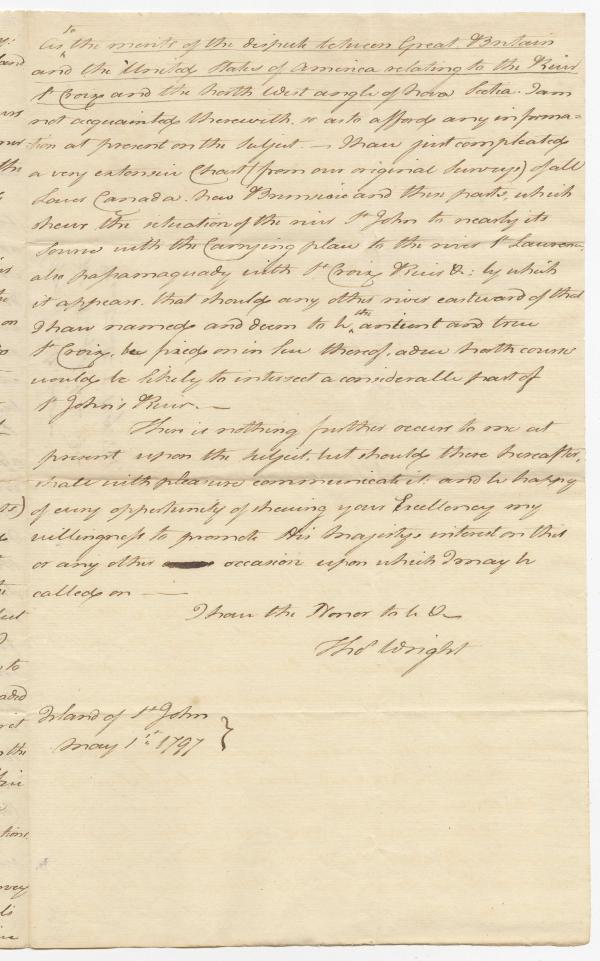 As to the merits of the dispute between Great Britain
and the United States of America relating to the River
St Croix and the North West angle of Nova Scotia. I am
not acquainted therewith so as to afford any informa-
tion at present on the Subject. — I have just compleated
a very extensive Chart (from our original Surveys) of all
Lower Canada. New Brunswic and these parts, which
shews the situation of the river St John to nearly its
Source with the Carrying place to the river St Lawrence,
also passamaquady with St Croix River &c: by which
it appears, that should any other river eastward of that
I have named and deem to be the antient and true
St Croix, be fixed on in lieu thereof, a due north course
would be likely to intersect a considerable part of
St John's River. —
There is nothing further occurs to me at
present upon the subject, but should there hereafter,
shall with pleasure communicate it: and be happy
of every opportunity of shewing your Excellency my
willingness to promote His Majestys interest on this
or any other occasion upon which I may be
called on —
I have the Honor to be &c
Thos Wright
Island of St John
May 1st 1797 }